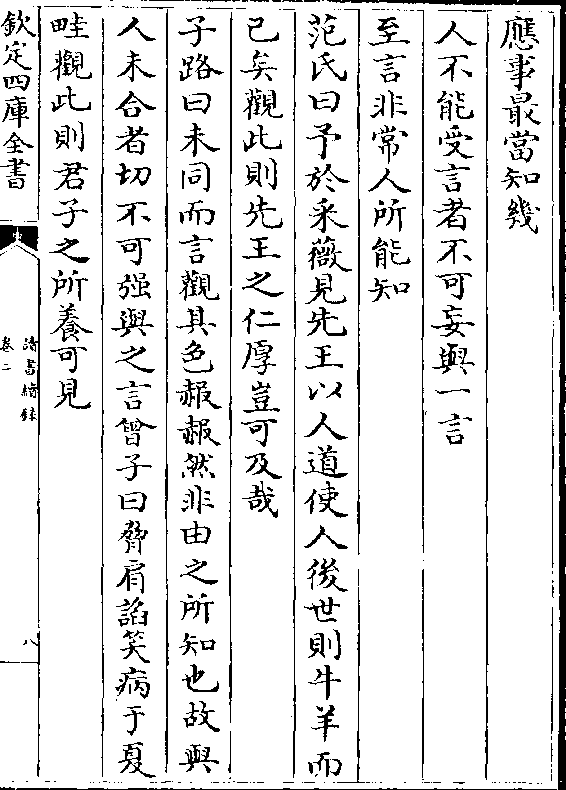 應事最當知幾
人不能受言者不可妄與一言
至言非常人所能知
范氏曰予於采薇見先王以人道使人後世則牛羊而
已矣觀此則先王之仁厚豈可及哉
子路曰未同而言觀其色赧赧然非由之所知也故與
人未合者切不可强與之言曾子曰脅肩諂笑病于夏
畦觀此則君子之所養可見
欽定四庫全書
讀書續録
卷二
八